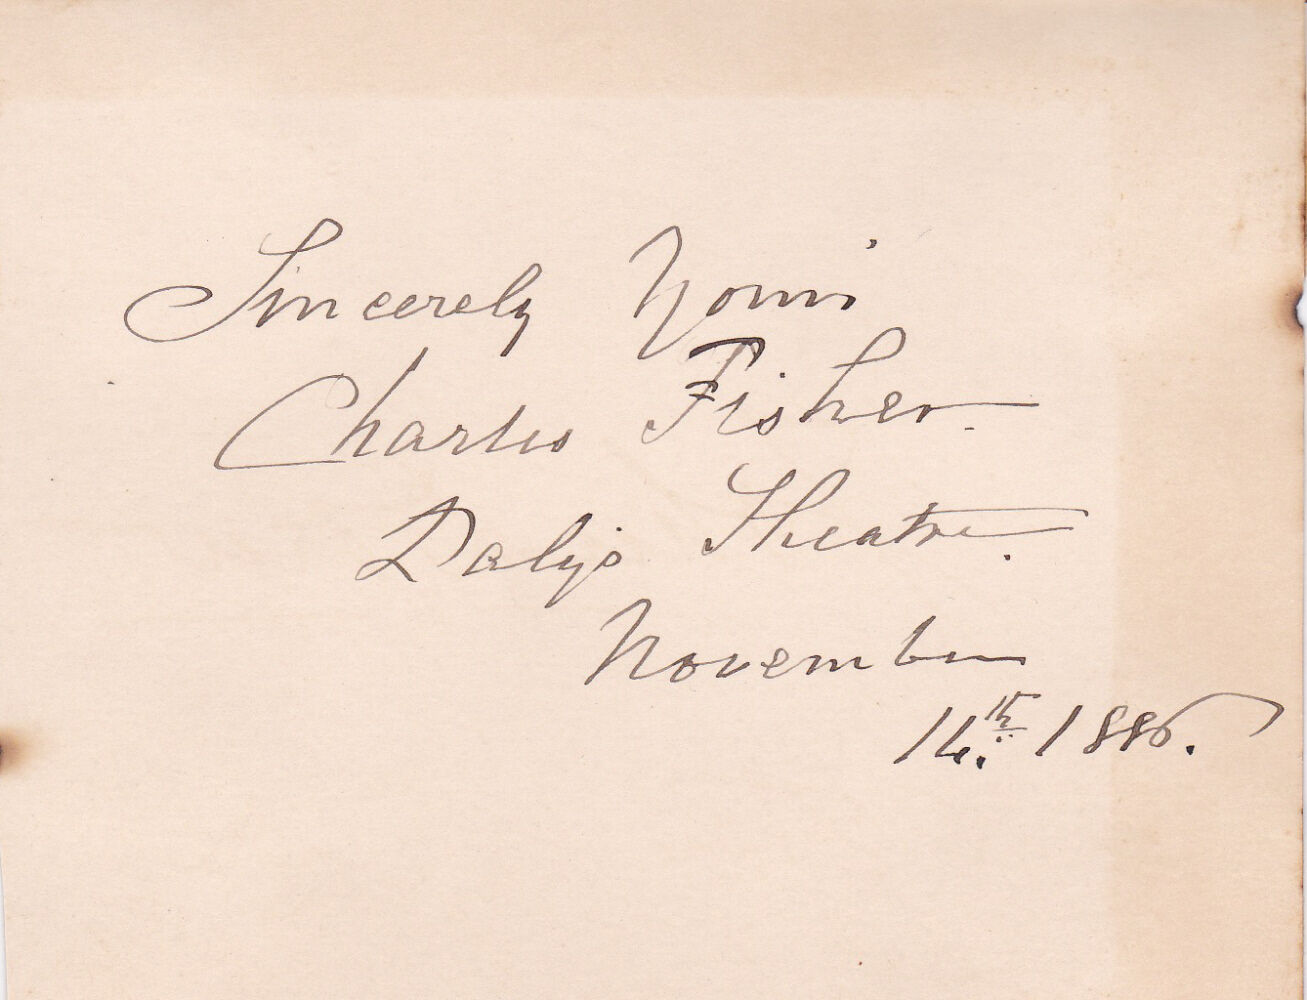 Sincerely Yours
Charles Fisher.
Daly's Theatre.
November
14th. 1886.